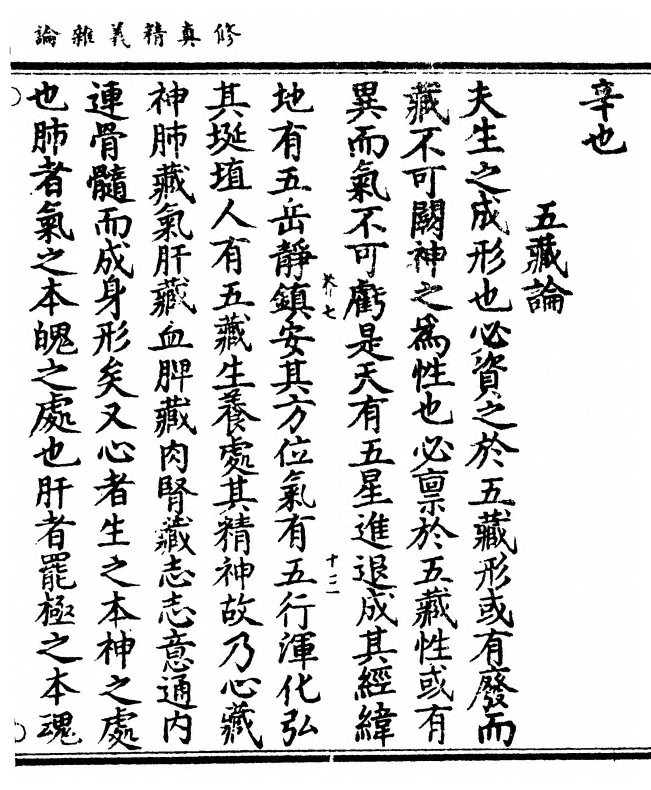 修真精義雜論
辛也
五藏論
夫生之成形也必資之於五藏形或有廢而
藏不可闕神之爲性也必禀於五藏性或有
異而氣不可虧是天有五星進退成其經緯
十二
地有五岳靜鎮安其方位氣有五行渾化弘
其埏埴人有五藏生養處其精神故乃心藏
神肺藏氣肝藏血脾藏肉腎藏志志意通內
連骨髓而成身形矣又心者生之本神之處
也肺者氣之本魄之處也肝者罷極之本魂